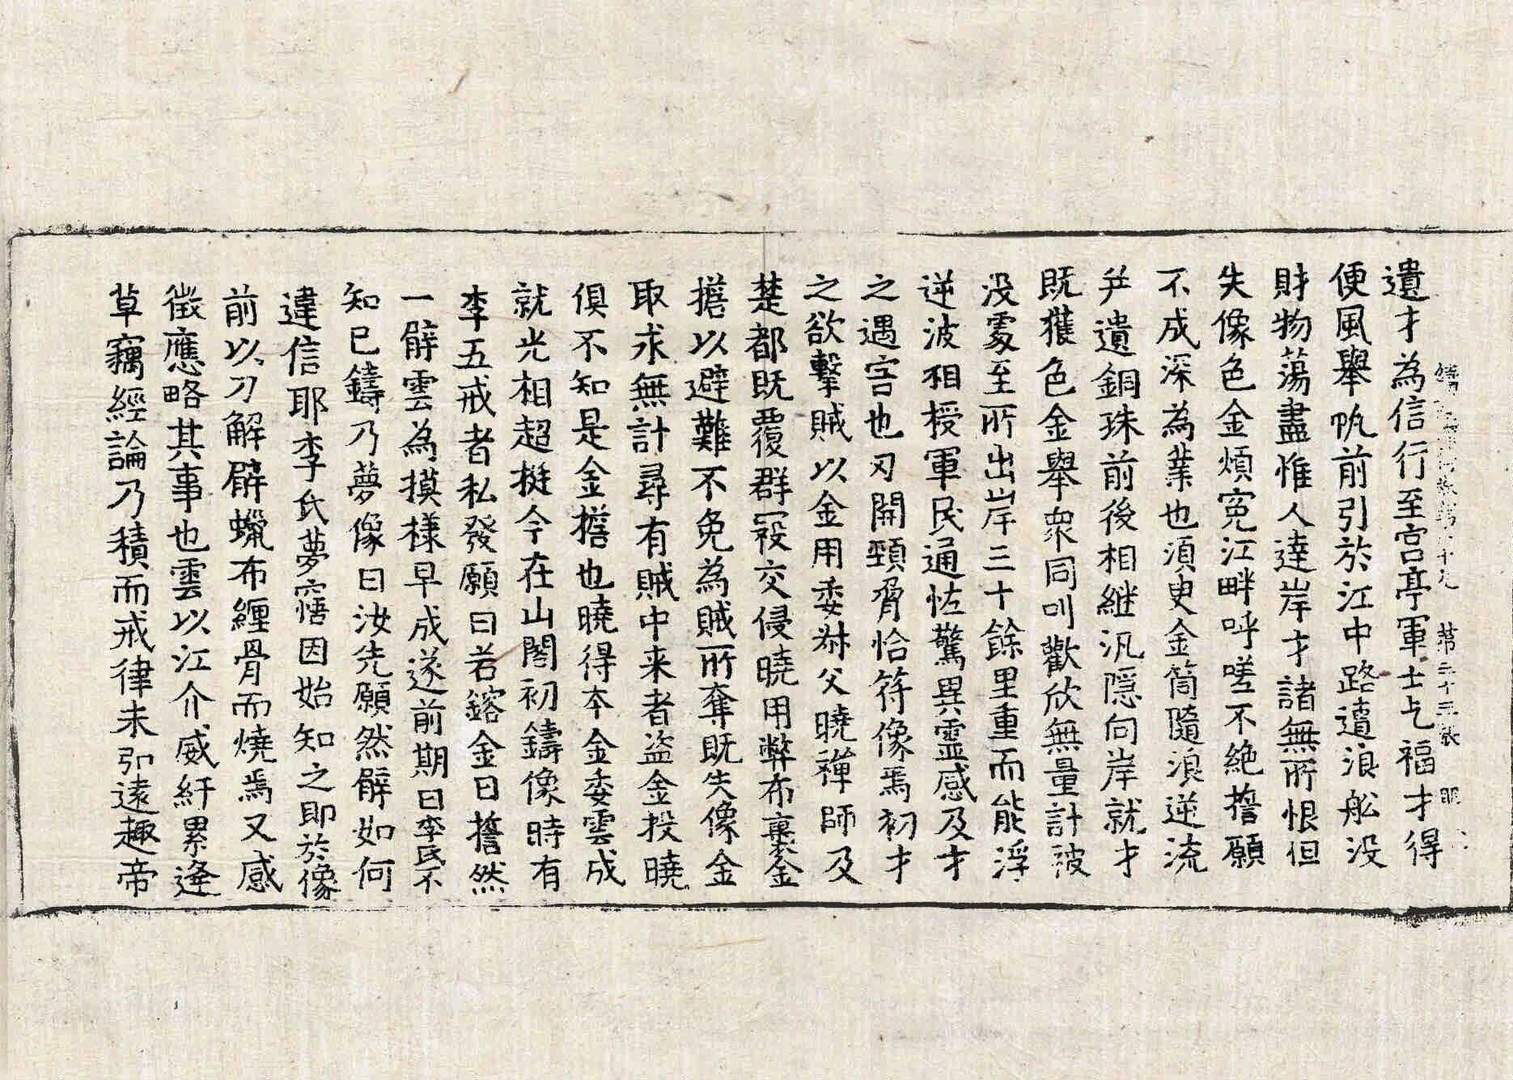 遺才為信行至宮亭軍士乞福才得
便風舉帆前引於江中路遭浪舩没
財物蕩盡惟人達岸才諸無所恨但
失像色金煩寃江畔呼嗟不絶擔願
不成深為業也須臾金筒隨浪逆流
并遺銅珠前後相継汎隱向岸就才
既獲色金舉衆同叫歡欣無量計被
没處至所出岸三十餘里重而能浮
逆波相授軍民通怪驚異靈感及才
之遇害也刃開頸脅恰符像焉初才
之欲擊賊以金用委叔父曉禪師及
楚都既覆群寇交侵曉用弊布裹金
擔以避難不免為賊所奪既失像金
取求無計尋有賊中来者盗金投曉
俱不知是金擔也曉得本金委雲成
就光相超挺今在山閣初鑄像時有
李五戒者私發願曰若鎔金日擔然
一臂雲為摸樣早成遂前期日李氏不
知已鑄乃夢像曰汝先願然臂如何
違信耶李氏夢寤因始知之即於像
前以刀解臂蠟布纏骨而燒焉又感
徵應略其事也雲以江介威紆累逢
草竊經論乃積而戒律未弘遠趣帝
第二十三張